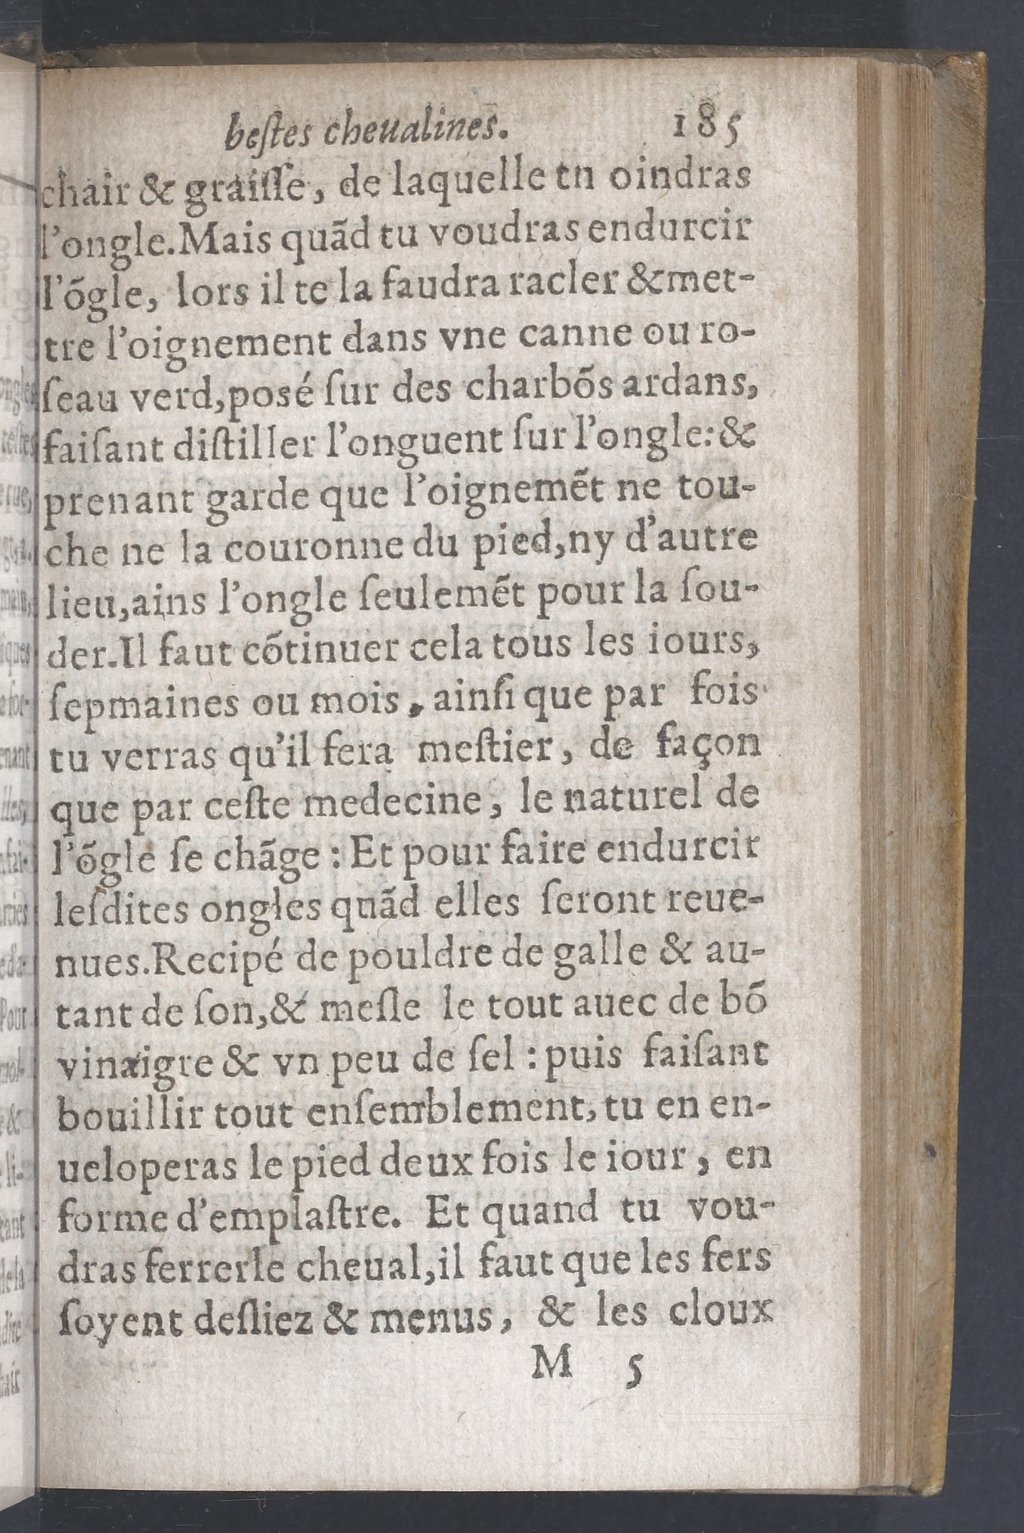 beſtes cheualines. 185
chair & graiſſe, de laquelle tn oindras
l'ongle.Mais quãd tu voudras endurcir
l'õgle, lors il te la faudra racler &met-
tre l'oignement dans vne canne ou ro-
ſeau verd,posé ſur des charbõs ardans,
faiſant diſtiller l'onguent ſur l'ongle:&
prenant garde que l'oignemẽt ne tou-
che ne la couronne du pied,ny d'autre
lieu,ains l'ongle ſeulemẽt pour la ſou-
der.Il faut cõtinuer cela tous les iours,
ſepmaines ou mois, ainſi que par fois
tu verras qu'il ſera meſtier, de façon
que par ceſte medecine, le naturel de
l'õgle ſe chãge : Et pour faire endurcir
leſdites ongles quãd elles ſeront reue-
nues.Recipé de pouldre de galle & au-
tant de ſon,& meſle le tout auec de bõ
vinaigre & vn peu de ſel : puis faiſant
bouillir tout enſemblement, tu en en-
ueloperas le pied deux fois le iour, en
forme d'emplaſtre. Et quand tu vou-
dras ferrerle cheual,il faut que les fers
ſoyent deſliez & menus, & les cloux
M 5